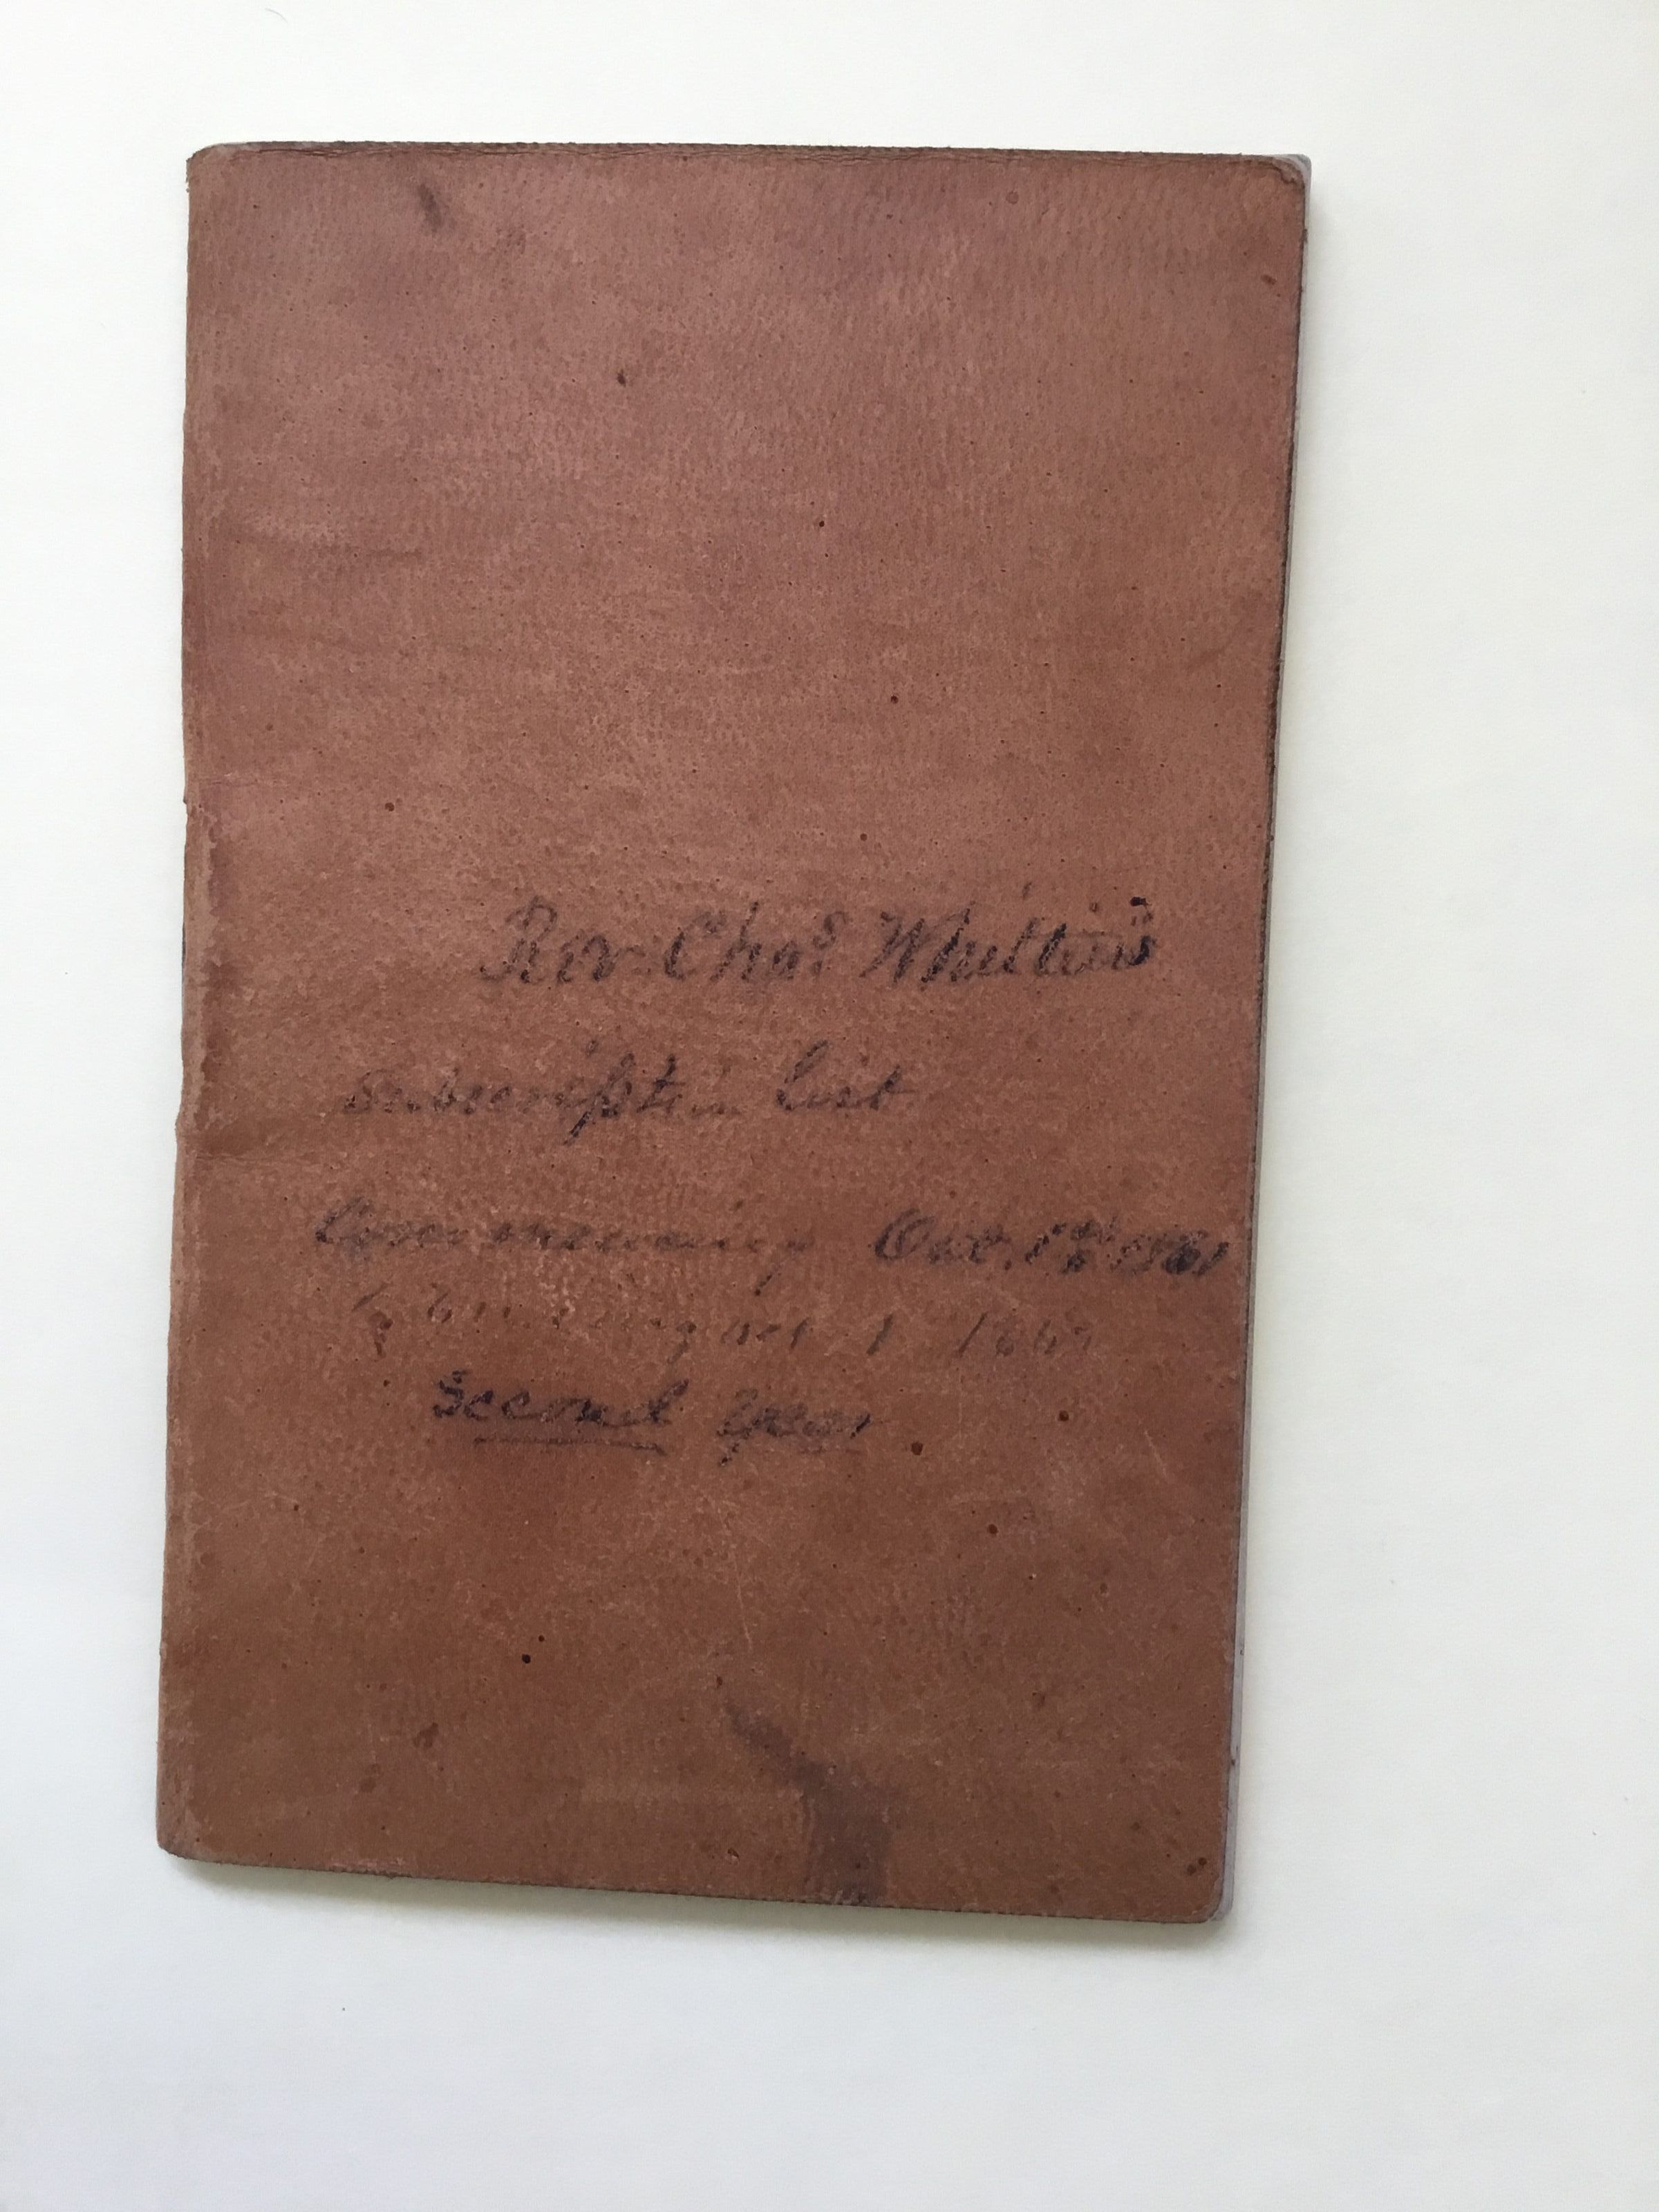 Rev. Chas Whittier's
subscription list
Commencing Oct. 1st 1861
& Ending Oct 1 186
Second year